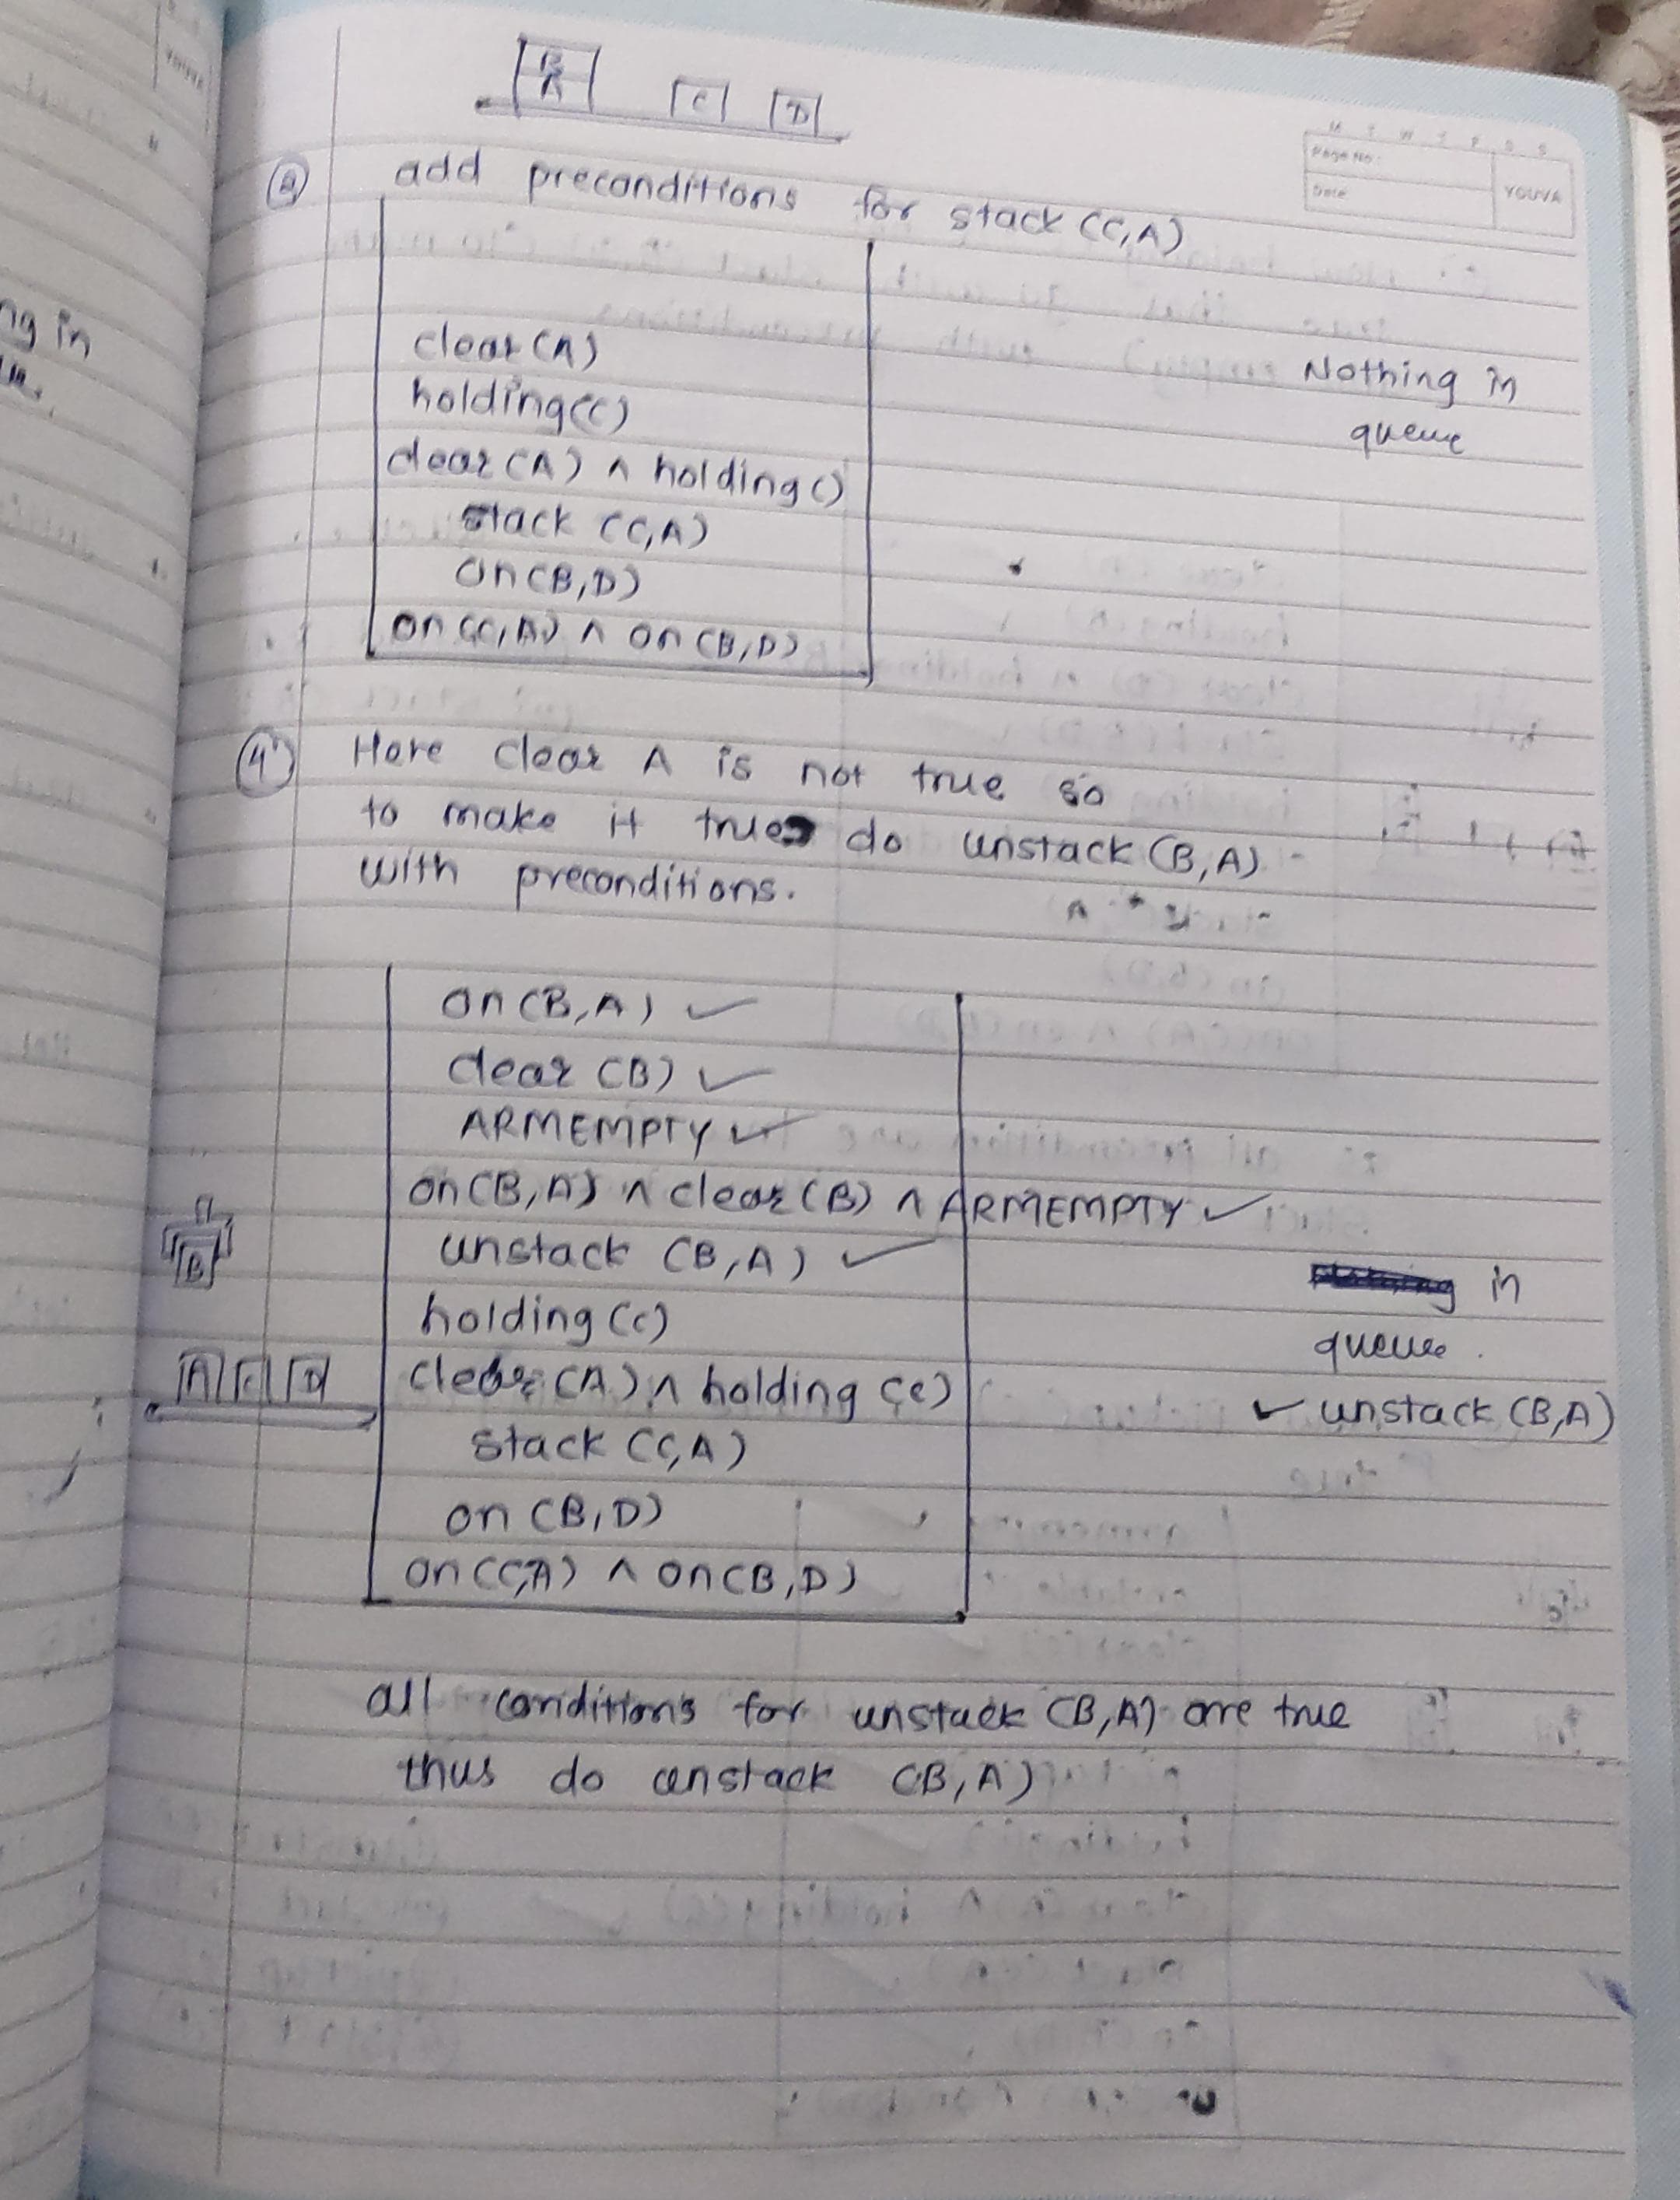 B
A
C
D
M T W T F S S
Page No:
Date
YOUVA
③ add preconditions for stack (C,A)
clear (A)
holding(C)
clear (A) ∧ holding()
stack (C,A)
on(B,D)
on (C,A) ∧ on (B,D)
Nothing in
queue
④ Here clear A is not true so
to make it true do unstack (B,A)
with preconditions.
on (B,A) ✓
clear (B) ✓
ARMEMPTY ✓
on(B,A) ∧ clear (B) ∧ ARMEMPTY ✓
unstack (B,A) ✓
holding (c)
clear (A) ∧ holding (c)
stack (C,A)
on (B,D)
on (C,A) ∧ on (B,D)
B
A C D
in
queue.
✓ unstack (B,A)
all conditions for unstack (B,A) are true
thus do unstack (B,A)
ng in